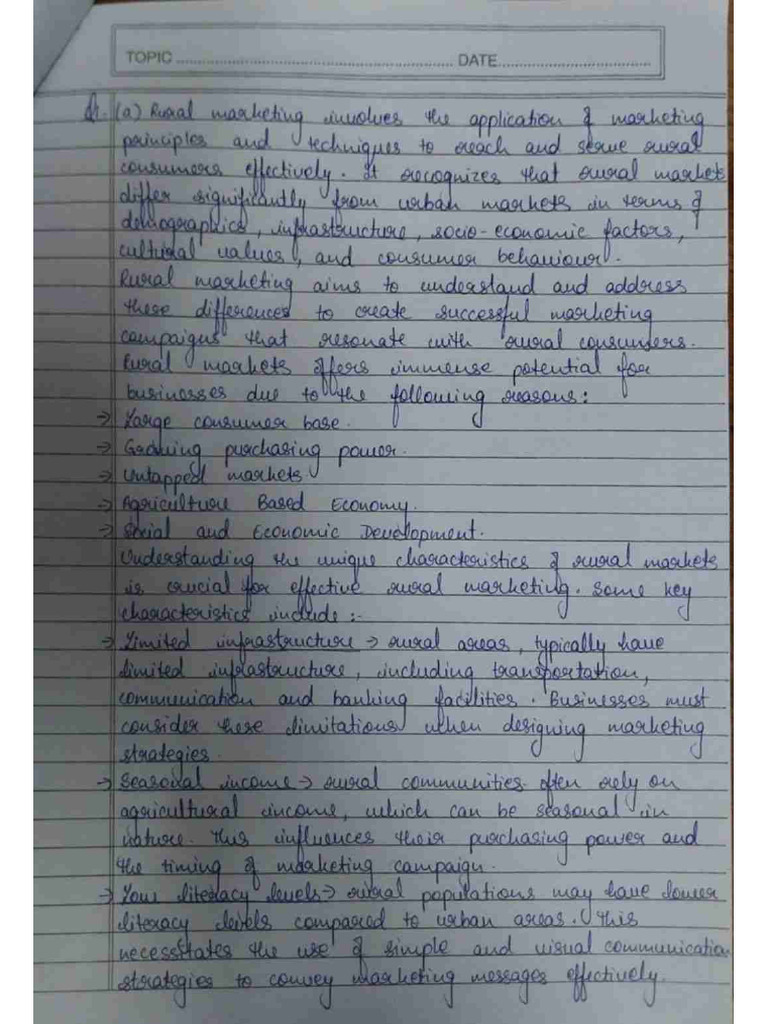 TOPIC ........................................................ DATE....................................
Q1. (a) Rural marketing involves the application of marketing
principles and techniques to reach and serve rural
consumers effectively. It recognizes that rural markets
differ significantly from urban markets in terms of
demographics, infrastructure, socio-economic factors,
cultural values, and consumer behaviour.
Rural marketing aims to understand and address
these differences to create successful marketing
campaigns that resonate with rural consumers.
Rural markets offers immense potential for
businesses due to the following reasons:
→ Large consumer base.
→ Growing purchasing power.
→ Untapped markets
→ Agriculture Based Economy.
→ Social and Economic Development.
Understanding the unique characteristics of rural markets
is crucial for effective rural marketing. Some key
characteristics include :-
→ Limited infrastructure → rural areas, typically have
limited infrastructure, including transportation,
communication and banking facilities. Businesses must
consider these limitations when designing marketing
strategies.
→ Seasonal income → rural communities often rely on
agricultural income, which can be seasonal in
nature. This influences their purchasing power and
the timing of marketing campaign.
→ Low literacy levels → rural populations may have lower
literacy levels compared to urban areas. This
necessitates the use of simple and visual communication
strategies to convey marketing messages effectively.